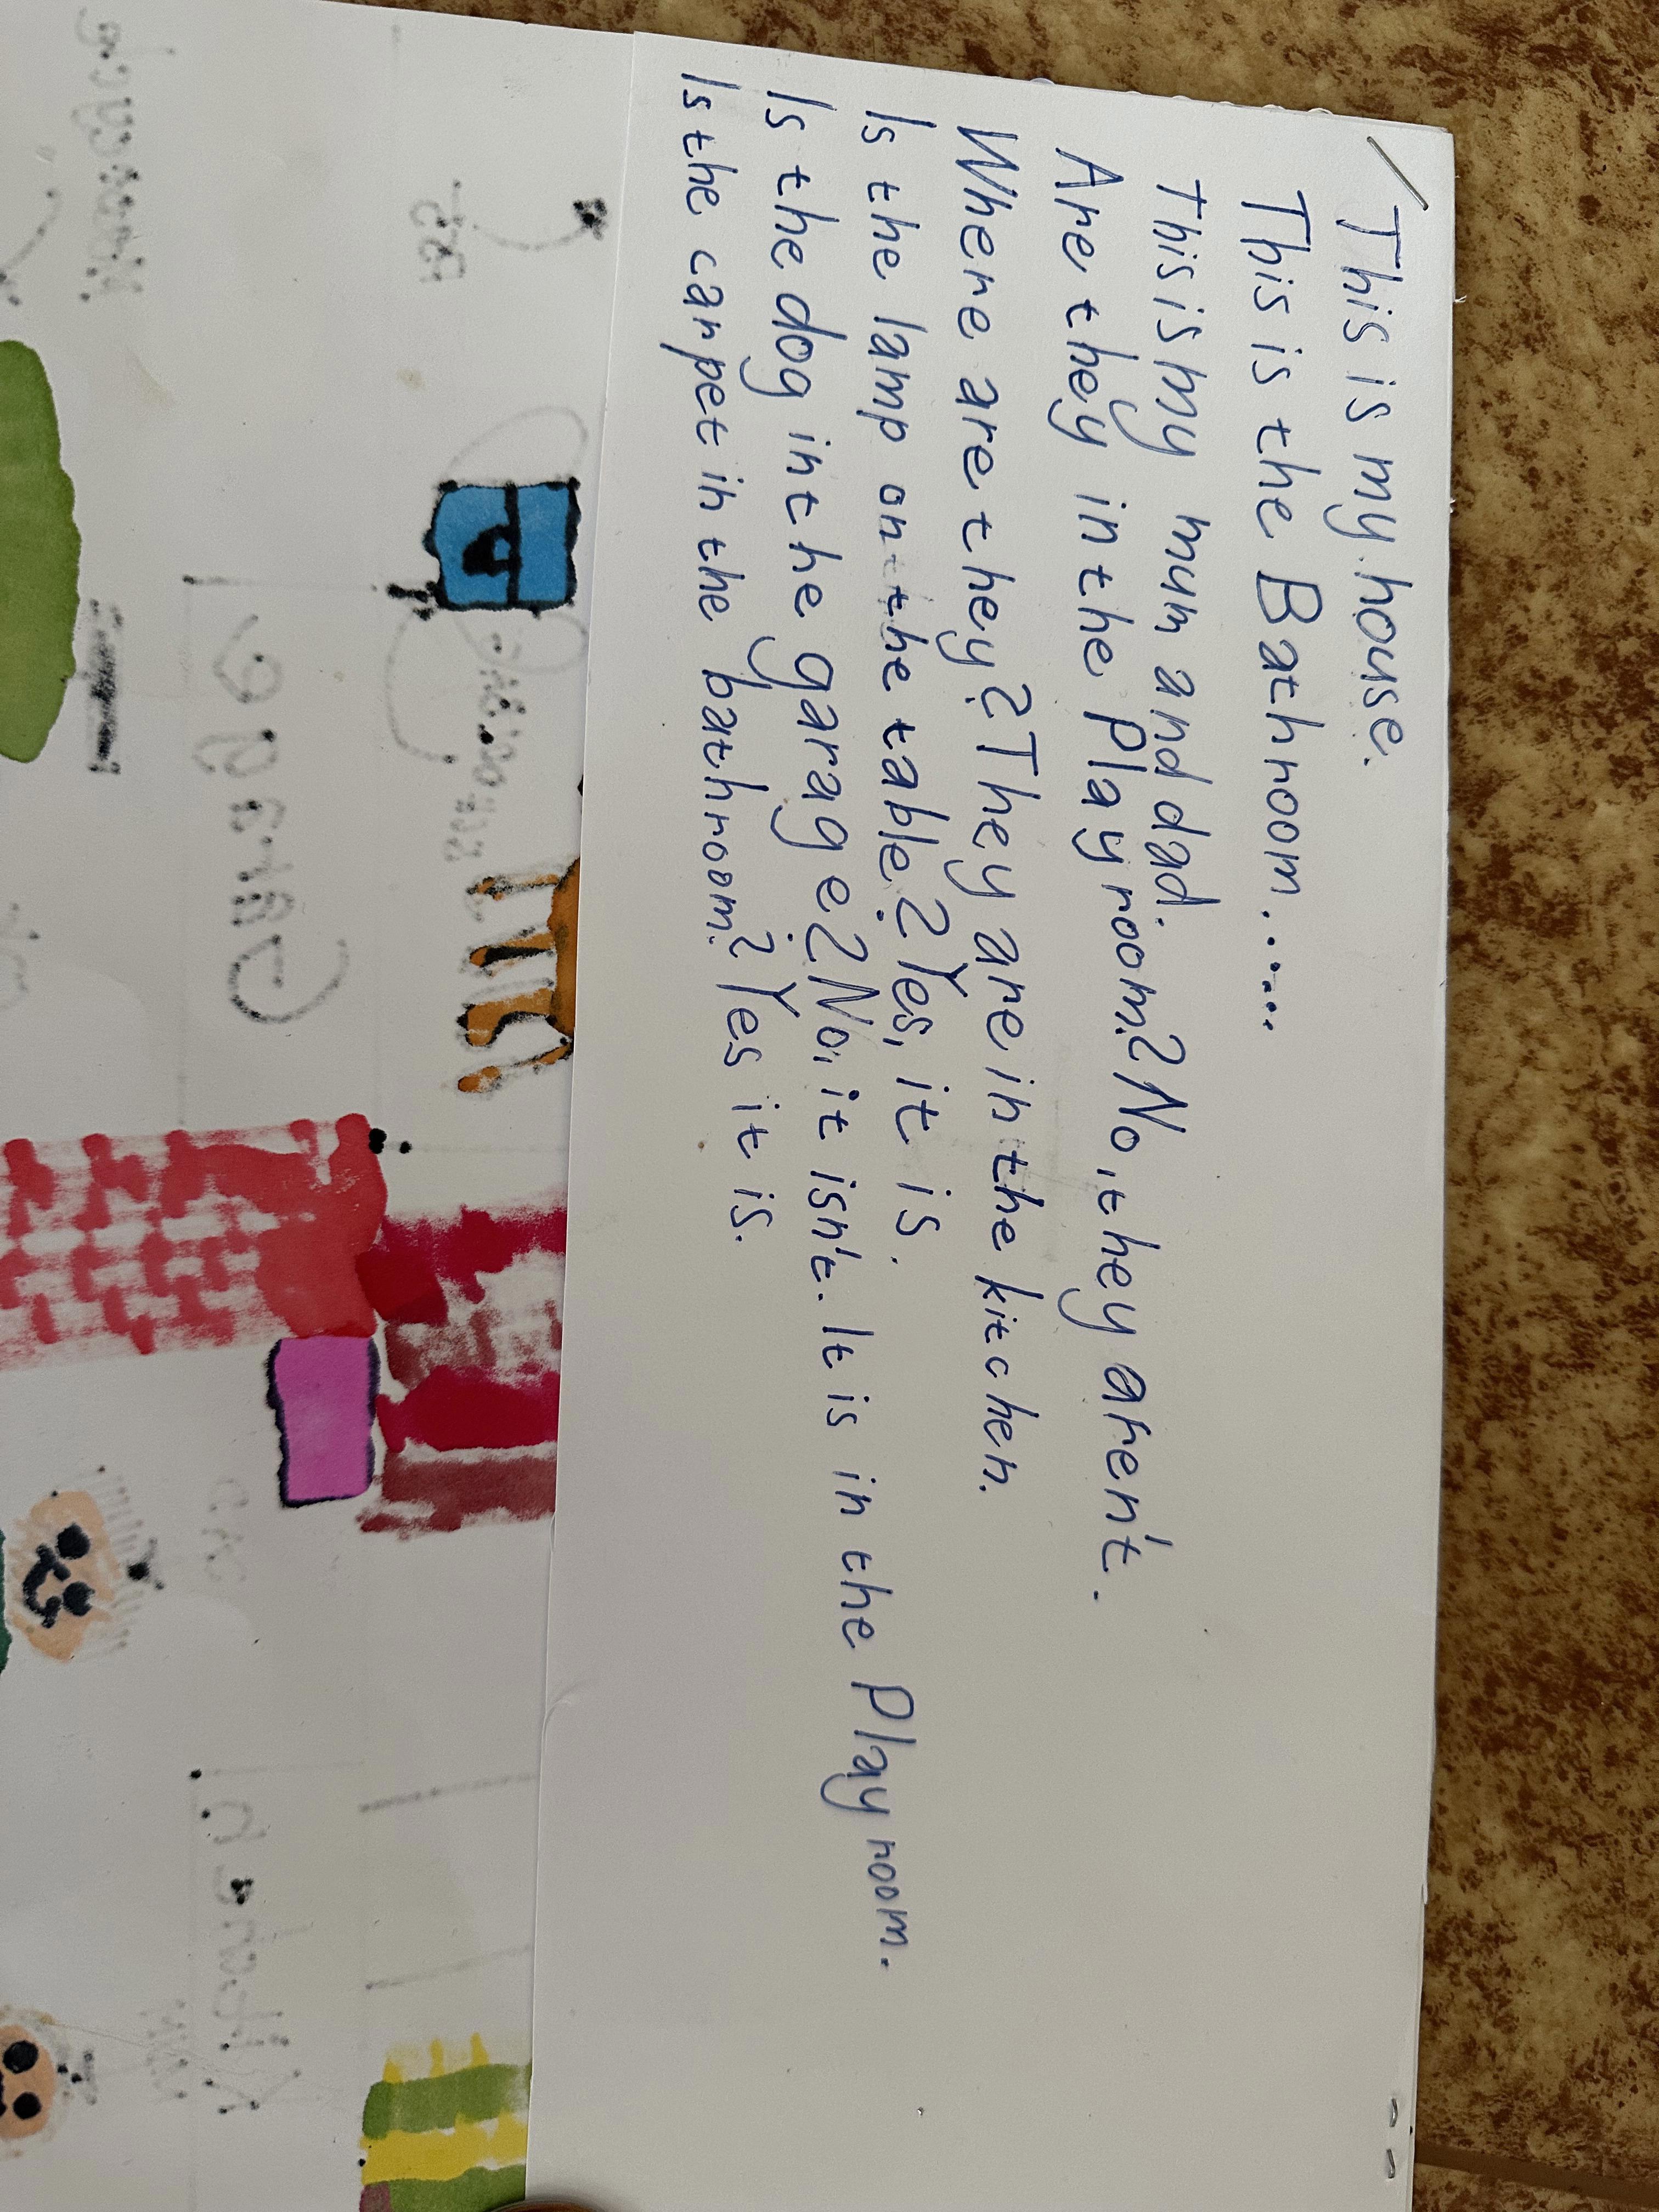 This is my house.
This is the Bathroom......
This is my mum and dad.
Are they in the Playroom? No, they aren't.
Where are they? They are in the kitchen.
Is the lamp on the table? Yes, it is.
Is the dog in the garage? No, it isn't. It is in the Playroom.
Is the carpet in the bathroom? Yes it is.